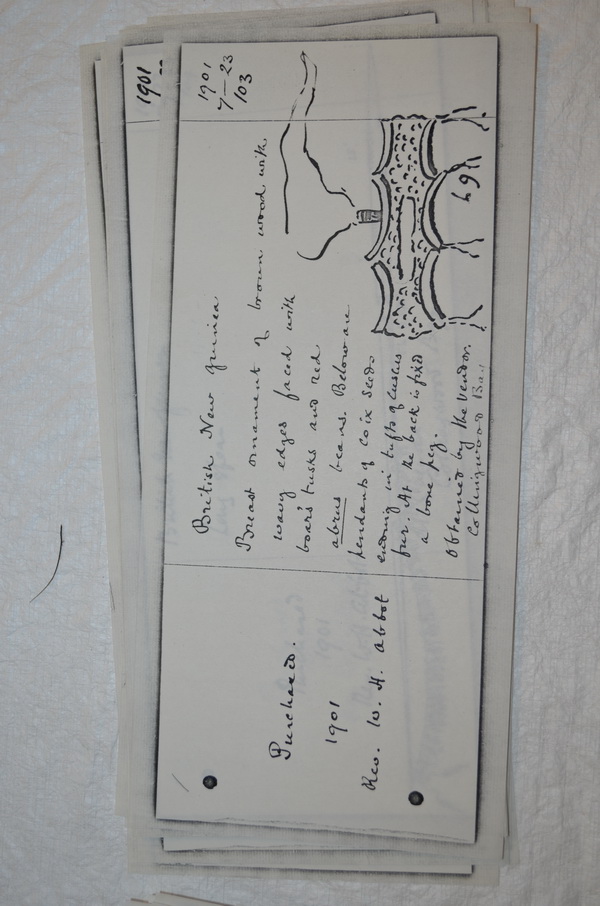 1901
1901
7–23
103
British New Guinea
Breast ornament of brown wood with
wavy edges faced with
boar's tusks and red
abrus beans. Below are
pendants of coix seeds
ending in tufts of cuscus
fur. At the back is fixed
a bone peg.
Obtained by the vendor.
Collingwood Bay
Purchased.
1901
Rev. W. H. Abbot